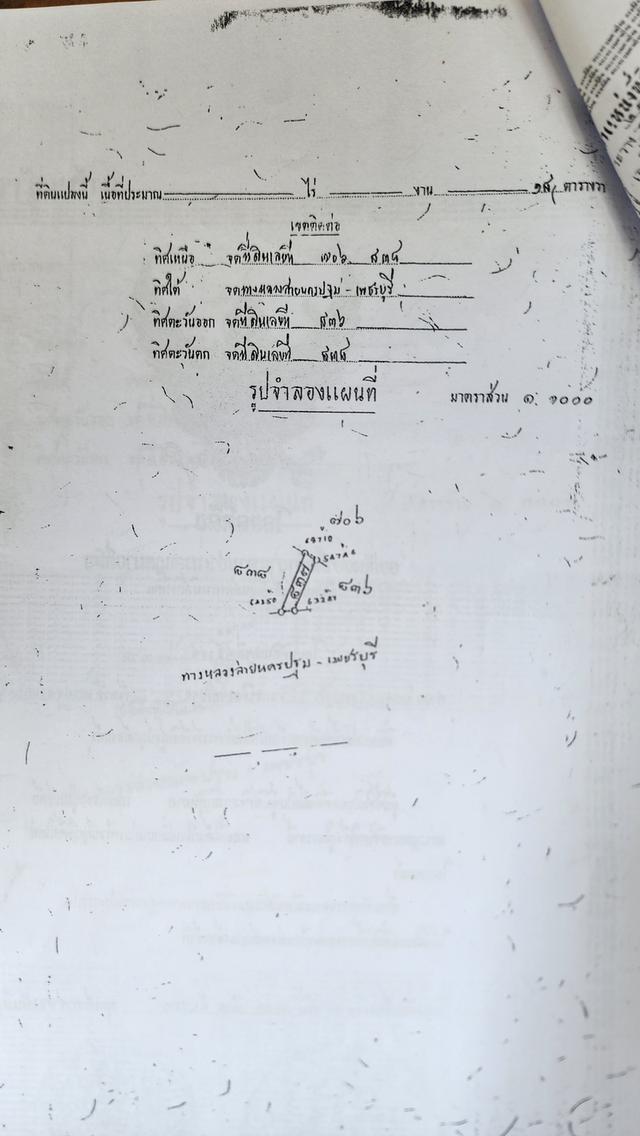 ที่ดินแปลงนี้ เนื้อที่ประมาณ ไร่ งาน ตารางวา
เขตติดต่อ
ทิศเหนือ จดที่ดินเลขที่ ๗๐๖
ทิศใต้ จดทางหลวงสายนครปฐม - เพชรบุรี
ทิศตะวันออก จดที่ดินเลขที่ ๕๓๖
ทิศตะวันตก จดที่ดินเลขที่ ๕๓๘
รูปจำลองแผนที่ มาตราส่วน ๑ : ๑๐๐๐
๗๐๖
๕๓๘
๕๓๗
๕๓๖
ทางหลวงสายนครปฐม - เพชรบุรี